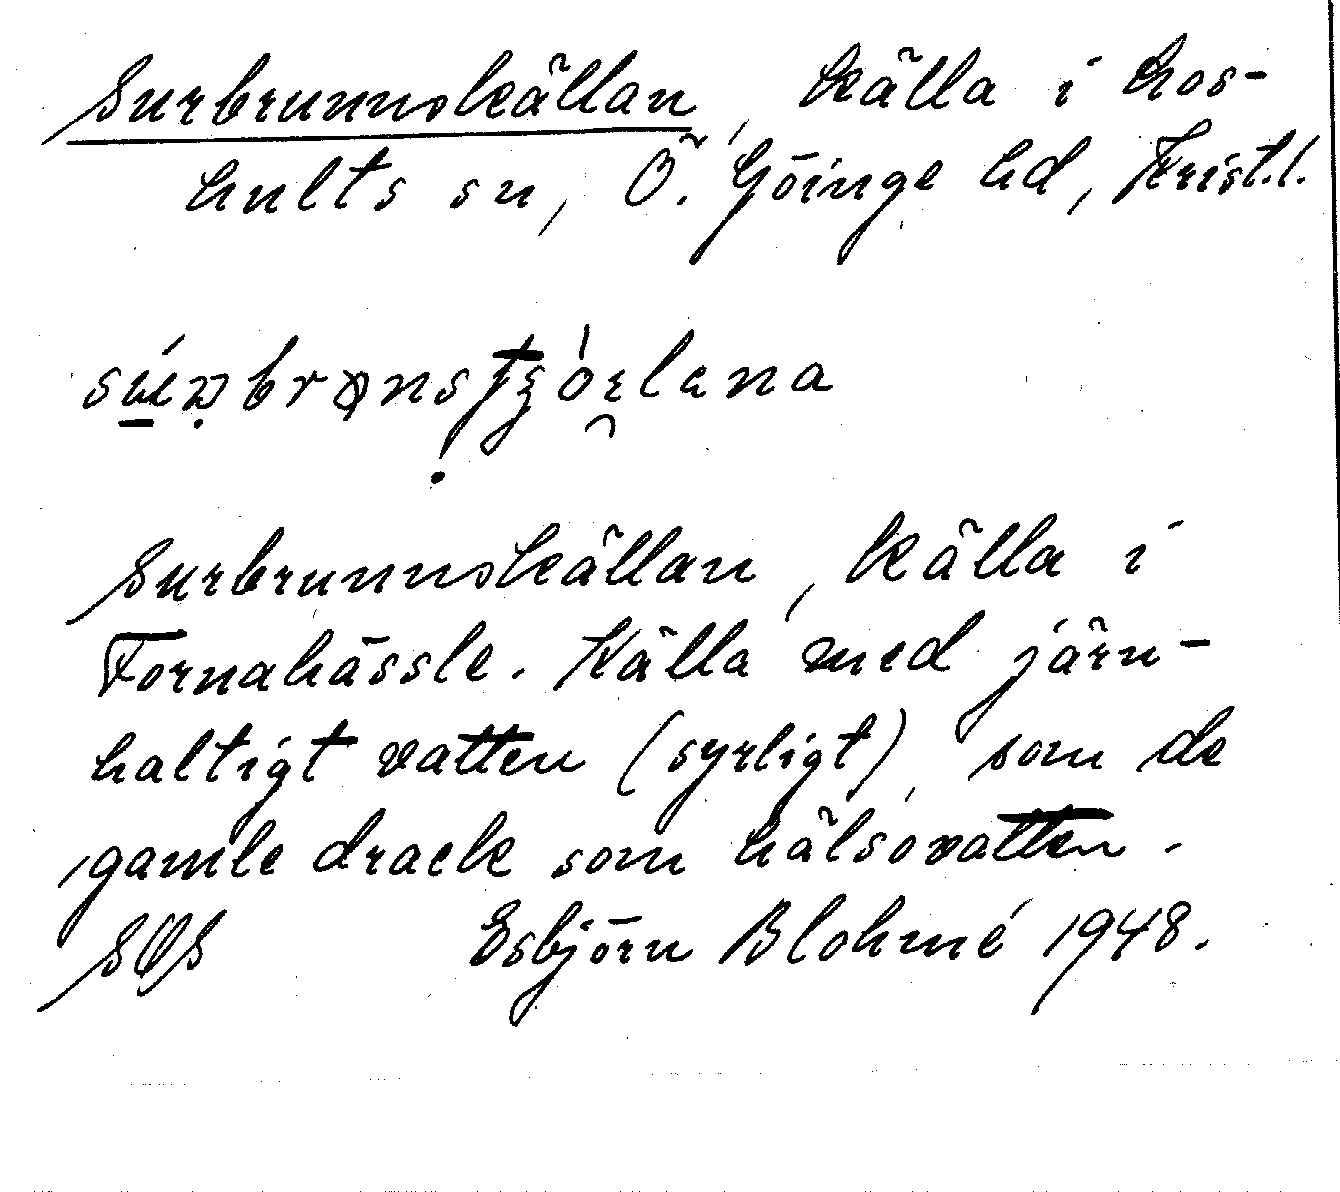 Surbrunnskällan, källa i Los-
hults sn, Ö. Göinge hd, Krist.l.
Surbrunnskällan, källa i
Tornahässle. Källa med järn-
haltigt vatten (syrligt), som de
gamle drack som hälsovatten.
SOS Esbjörn Blohmé 1948.